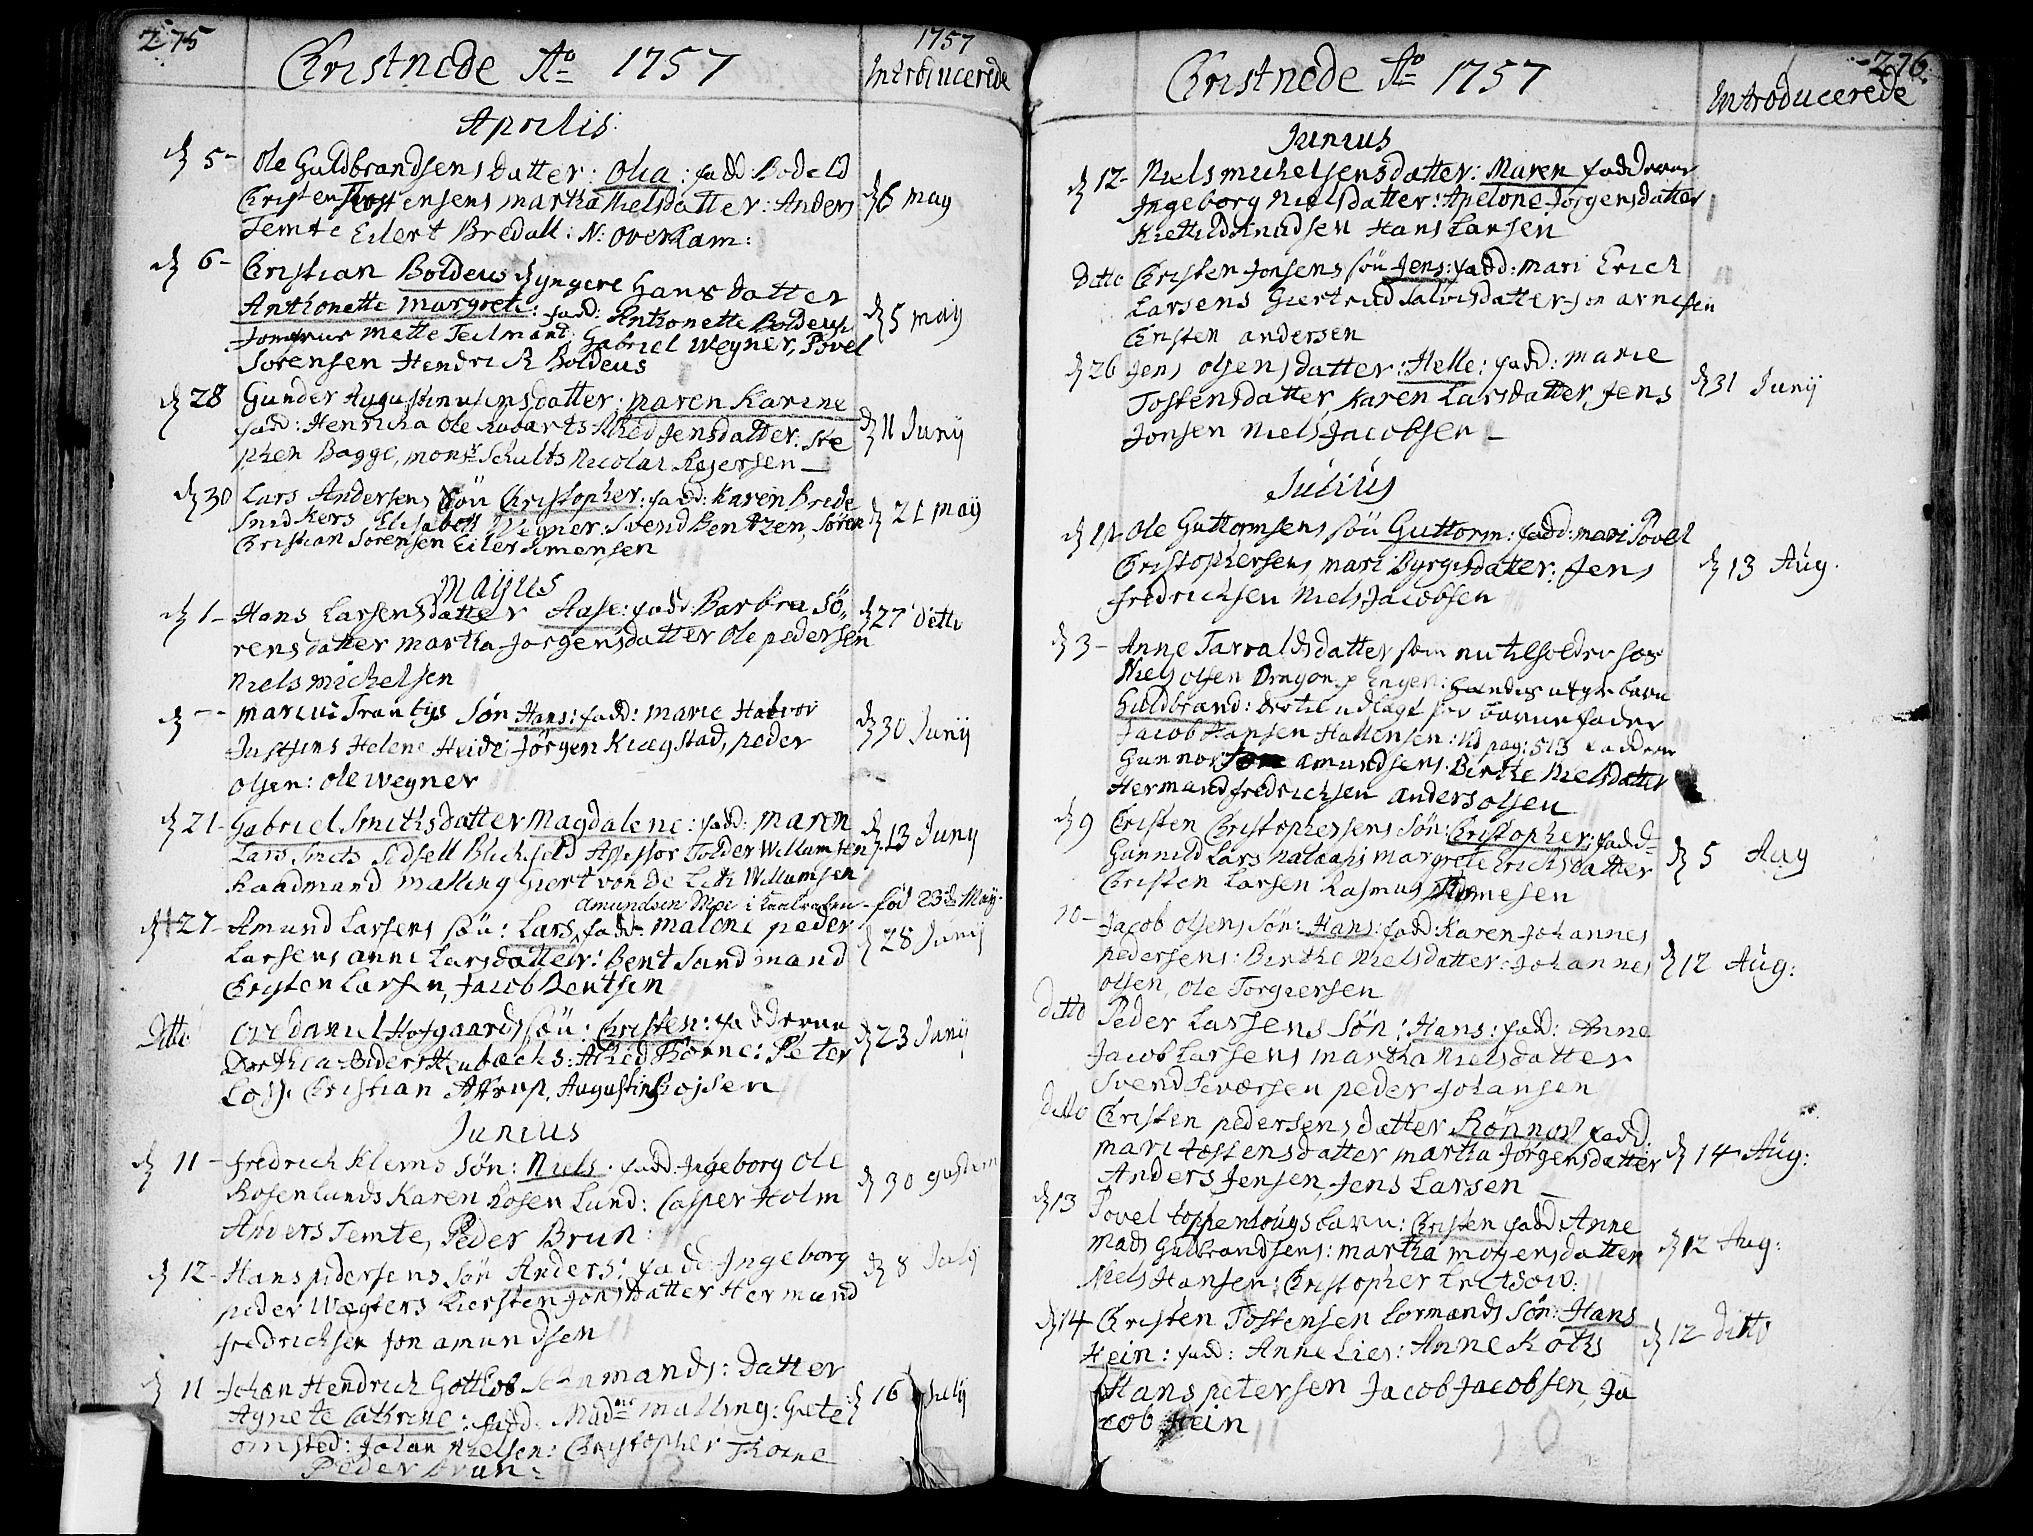 275
Christnede Ao 1757
1757
Introducerede
Aprilis
5- Ole Guldbrandsens datter: Olia: fadd: Bodeld
Christen Tostensens Martha Nielsdatter: Anders 6 may
Temte Eilert Bredall: N: Overkam:
6- Christian Boldeus dyngere hans datter
Anthonette Margrete: fadd: Anthonette Boldeus 5 maij
Jomfrue Mette Teilmand, Gabriel Wegner, Povel
Sorensen Hendrich Boldeus
28 Gunder Augustinusens datter: Maren Karine
fadd: Henricha Ole Robarts Jensdatter: Ste 11 Junij
phen Bagge, Monsr Schults Nicolai Rejersen
30 Lars Andersens søn Christopher: fadd: Karen Brede
Snedkers Elisabeth Wegner: Svend Bentzen, Søren 21 maij
Christian Sorensen Eiler Simensen
Maijus
1- Hans Larsens datter Aase: fadd: Barbra Sø- 27 ditto
rensdatter Martha Jorgensdatter Ole pedersen
Niels Michelsen
Marcus Trantys Søn Hans: fadd: Marie Halvor
Justsens Helene Heide: Jørgen Kiægstad, peder 30 Junij
Olsen: Ole Wegner
21- Gabriel Smiths datter Magdalene: fadd: Maren
Lars Smets Sidsell Blichfeld Assessor Tolder Willumsen 13 Junij
Raadmand Malling Giert von de Lith Willumsen
Amundsen - fød 23de Maij
27- Amund Larsens søn: Lars, fadd: Maloni peder 28 Junij
Larsens anne Larsdatter: Bent Sandmand
Christen Larsen, Jacob Bentsen
Ditto Ove Daniel Hofgaards søn: Christen: fadderne
Dorthea Anders Thorne: Peter 23 Junij
Loss. Christian Aftrup, Augustin Bojsen
Junius
11- Fredrich Klems søn: Niels: fadd: Ingeborg Ole
Rosenlunds Karen Rosenlund: Casper Holm 30
Anders Temte, Peder Brun
12- Hans pedersens søn Anders: fadd: Ingeborg
peder Wægters Kiersten Jonsdatter Hermand 8 Julij
fredrichsen Jon amundsen
11 Johan Hendrich Gottlob datter
Agnete Cathrine: fadd: Madme Malling: Grete 16 Julij
Omsted: Johan Nielsen: Christopher Thorne
Peder brun
276
Christnede Ao 1757
Introducerede
Junius
12- Niels Michelsens datter: Maren fadderne
Ingeborg Nielsdatter: Apelone Jorgensdatter
Kiettild Knudsen Hans Larsen
Ditto Christen Jonsens søn Jens: fadd: Mari Erich
Larsens Giertrud Salvisdatter Jon arnesen
Christen andersen
26 Jens Olsens datter: Helle: fadd: Marie
Tostensdatter, Karen Larsdatter Jens 31 Junij
Jonsen Niels Jacobsen
Julius
Ole Guttormsens søn Guttorm: fadd: Mari Povel
Christophersens Mari Byrgisdatter: Jens 13 Aug.
fredrichsen Niels Jacobsen
3- Anne Tarraldsdatter som nu tilholder hos
Niels Olsen Dragon p Engen: hendes barn
Guldbrand: dertil udlagt for barnefader
Jacob Hansen Hallensen: vid pag: 513 fadderne
Gunnor amundsens. Birthe Nielsdatter
Hermand fredrichsen Anders Olsen
9 Christen Christophersens søn: Christopher: fadd
Gunnild Lars Margrete Erichsdatter 5 Aug
Christen Larsen Rasmus
10- Jacob Olsens søn: Hans: fadd: Karen Johannes
pedersens: Birthe Nielsdatter: Johannes 12 Aug:
Olsen, Ole Torgiersen
Ditto Peder Larsens søn: Hans: fadd: Anne
Jacob Larsens Martha Nielsdatter
Svend Seversen peder Johansen
Ditto Christen pedersens datter Rønnov fadd:
Mari Tostensdatter Martha Jørgensdatter 14 Aug:
Anders Jensen, Jens Larsen
13 Povel barn: Christen fadd: Anne
Mads Gulbrandsens: Martha Mogensdatter 12 Aug:
Niels Hansen: Christopher
14 Christen Tostensen Lormands søn: Hans
Hein: fadd: Anne Lies: Anne Koths 12 ditto
Hans petersen Jacob Jacobsen, Ja
cob Hein